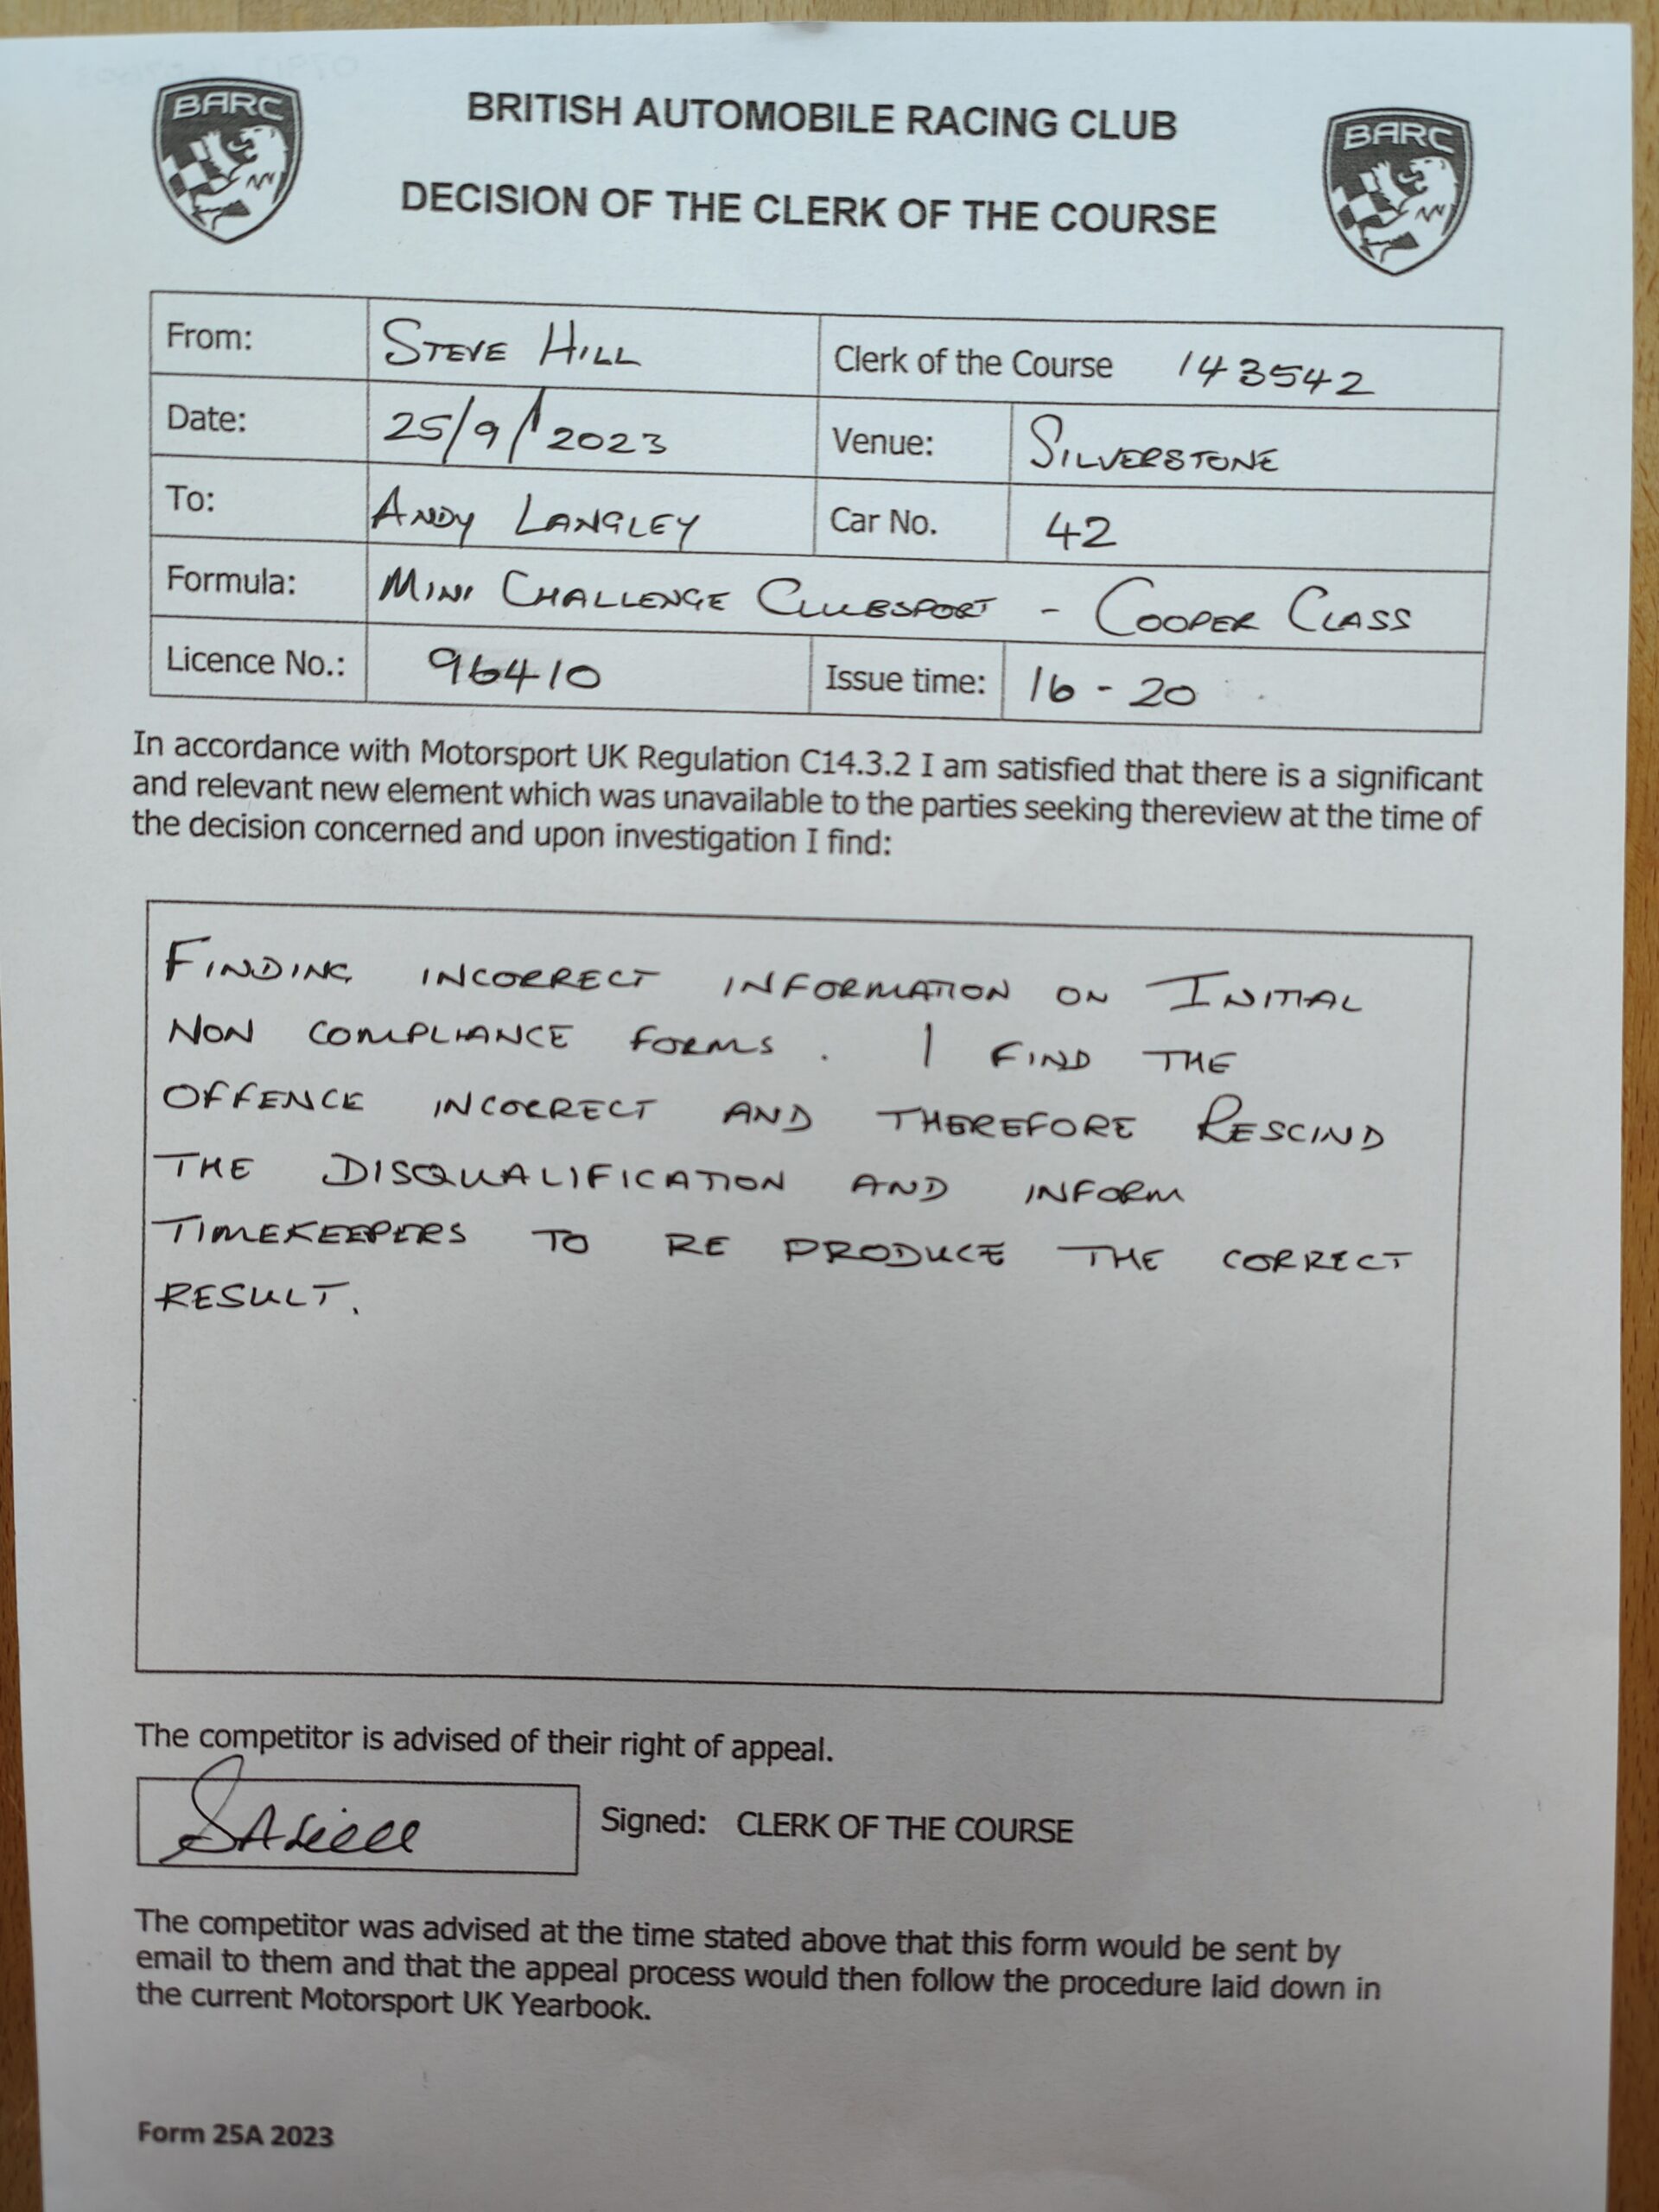 BARC
BRITISH AUTOMOBILE RACING CLUB
BARC
DECISION OF THE CLERK OF THE COURSE
From: STEVE HILL Clerk of the Course 143542
Date: 25/9/2023 Venue: SILVERSTONE
To: ANDY LANGLEY Car No. 42
Formula: MINI CHALLENGE CLUBSPORT - COOPER CLASS
Licence No.: 96410 Issue time: 16-20
In accordance with Motorsport UK Regulation C14.3.2 I am satisfied that there is a significant
and relevant new element which was unavailable to the parties seeking thereview at the time of
the decision concerned and upon investigation I find:
FINDING INCORRECT INFORMATION ON INITIAL
NON COMPLIANCE FORMS. I FIND THE
OFFENCE INCORRECT AND THEREFORE RESCIND
THE DISQUALIFICATION AND INFORM
TIMEKEEPERS TO RE PRODUCE THE CORRECT
RESULT.
The competitor is advised of their right of appeal.
Signed: CLERK OF THE COURSE
The competitor was advised at the time stated above that this form would be sent by
email to them and that the appeal process would then follow the procedure laid down in
the current Motorsport UK Yearbook.
Form 25A 2023